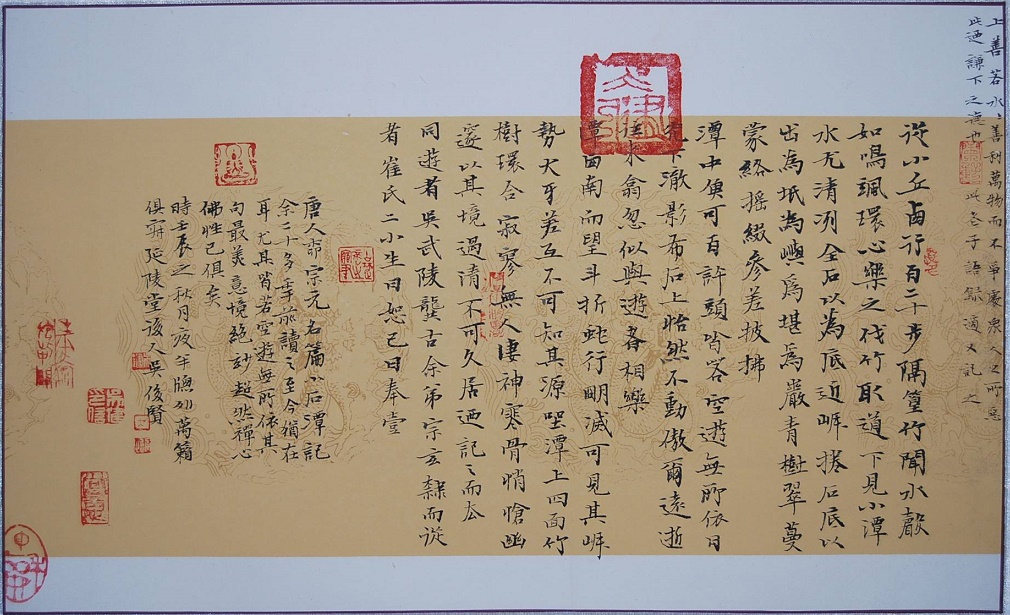 上善若水上善利萬物而不爭處衆人之所惡
此迺謙下之德也此老子語錄適又記之
從小丘卤行百二十步隔篁竹聞水聲
如鳴珮環心樂之伐竹取道下見小潭
水尤清冽全石以為底近岸捲石底以
出為坻為嶼為堪為巖青樹翠蔓
蒙絡搖綴參差披拂
潭中魚可百許頭皆若空遊無所依日
光下澈影布石上怡然不動俶爾遠逝
往來翕忽似與遊者相樂
潭卤南而望斗折蛇行明滅可見其岸
勢犬牙差互不可知其源坐潭上四面竹
樹環合寂寥無人悽神寒骨悄愴幽
邃以其境過清不可久居迺記之而去
同遊者吳武陵龔古余弟宗玄隸而從
者崔氏二小生曰恕己曰奉壹
唐人柳宗元右篇小石潭記
余二十多年前讀之至今猶在
耳尤其皆若空遊無所依其
句最美意境絕妙超然禪心
佛性已俱矣
時壬辰之秋月夜半牕外萬籟
俱寂延陵堂後人吳俊賢